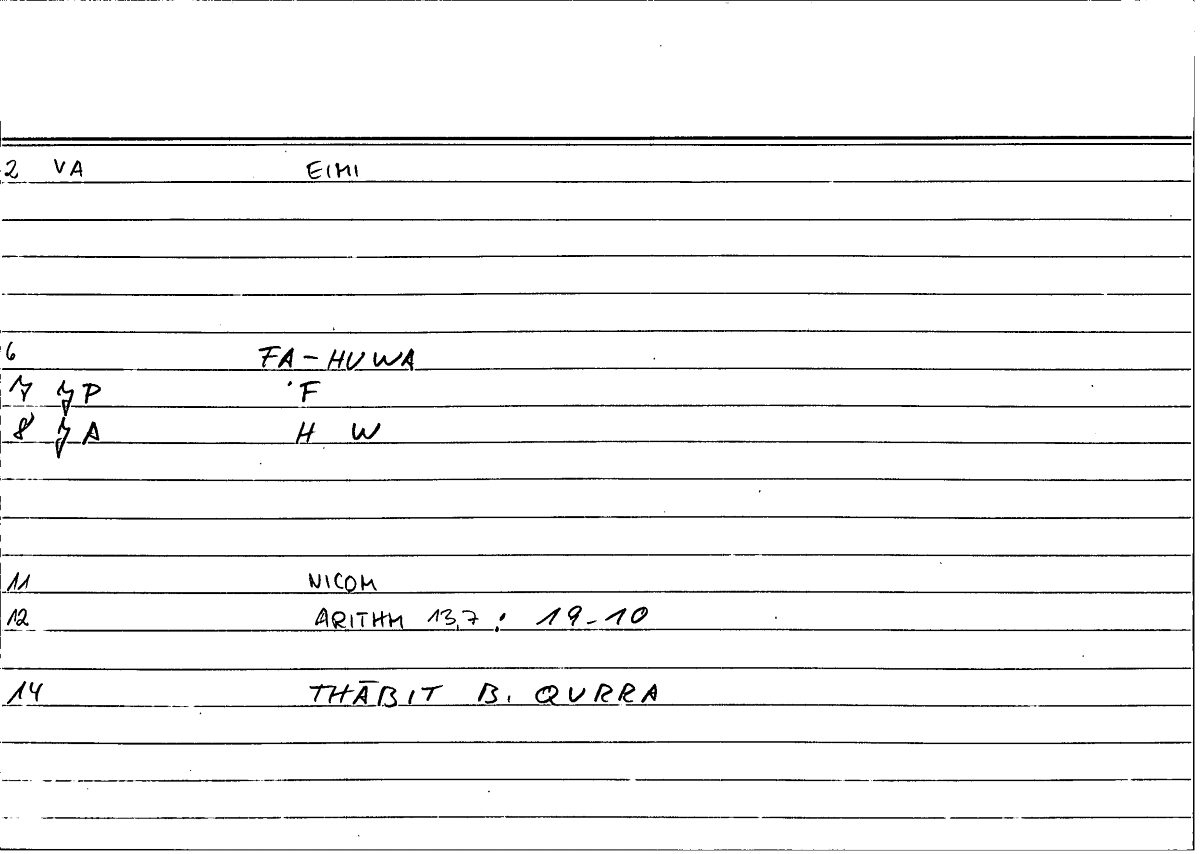 2 VA EIMI
6 FA-HUWA
7 JP 'F
8 JA H W
11 NICOM
12 ARITHM 13,7 : 19-10
14 THĀBIT B. QURRA